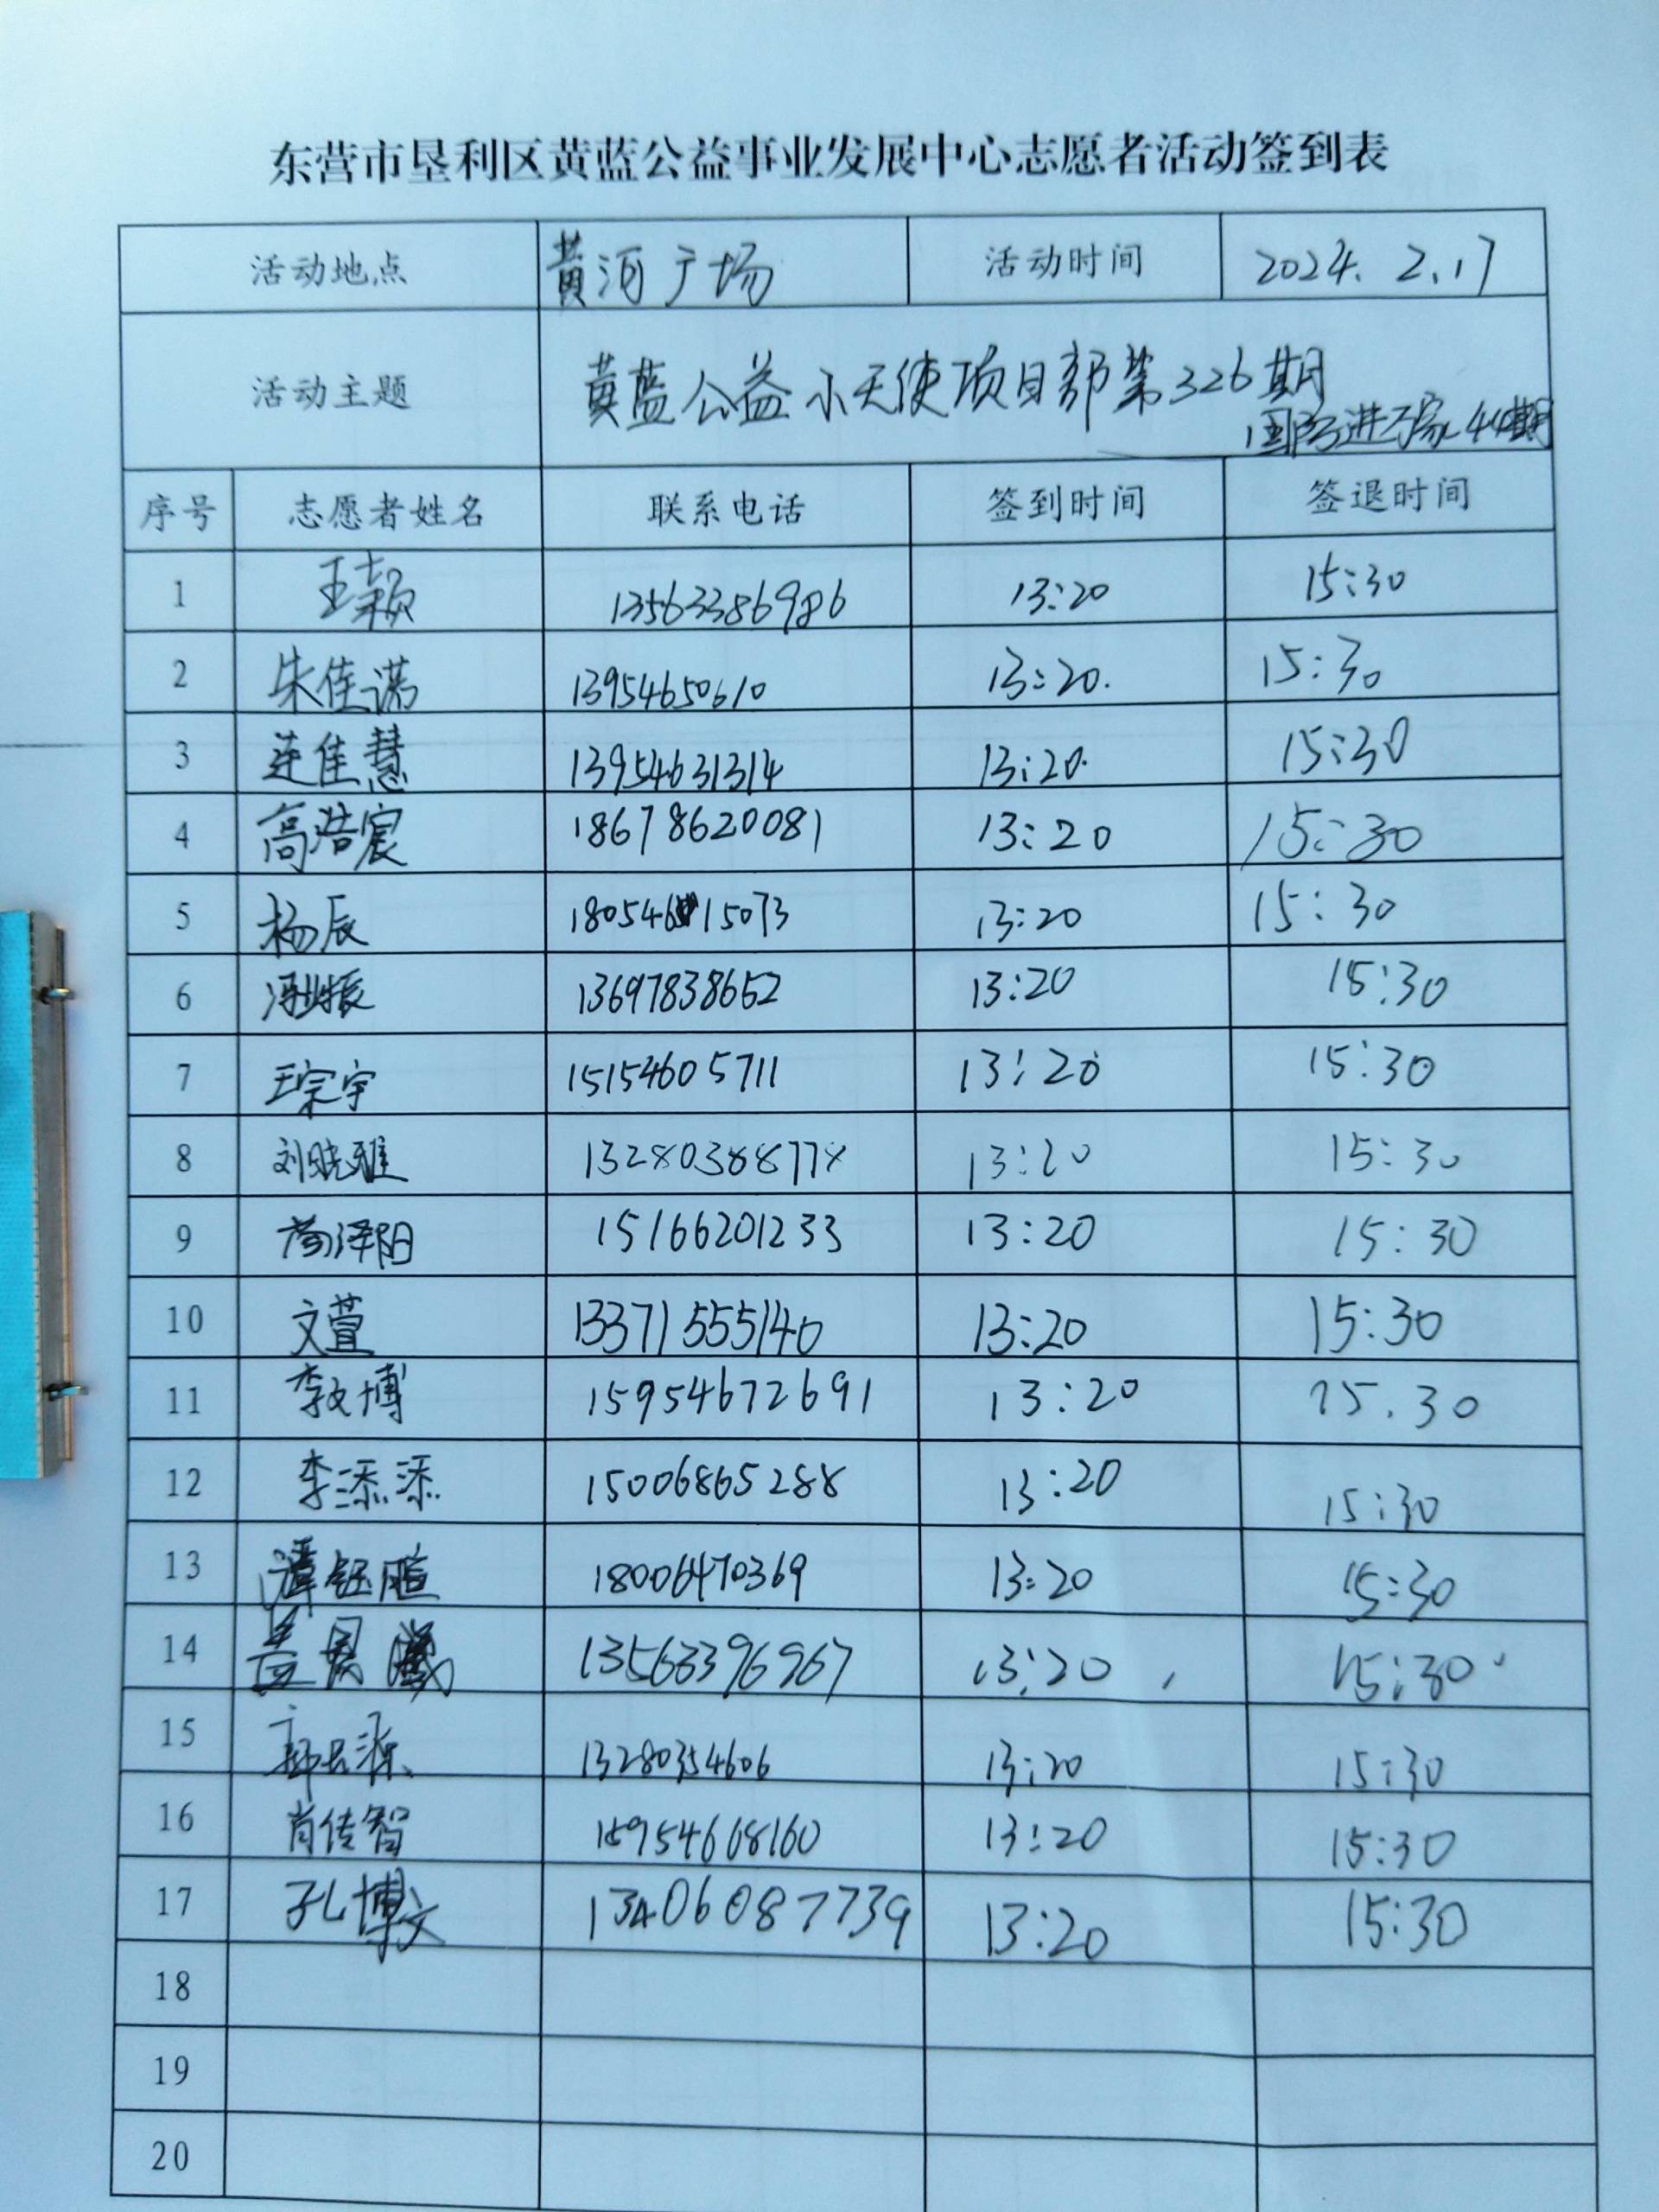 东营市垦利区黄蓝公益事业发展中心志愿者活动签到表
活动地点 黄河广场 活动时间 2024.2.17
活动主题 黄蓝公益小天使项目部第326期
国学进万家44期
序号 志愿者姓名 联系电话 签到时间 签退时间
1 王颖 13563386986 13:20 15:30
2 朱佳诺 13954650610 13:20. 15:30
3 连佳慧 13954631314 13:20. 15:30
4 高浩宸 18678620081 13:20 15:30
5 杨辰 18054615073 13:20 15:30
6 冯业振 13697838652 13:20 15:30
7 王宗宇 15154605711 13:20 15:30
8 刘晓雅 13280388778 13:20 15:30
9 尚泽阳 15166201233 13:20 15:30
10 文萱 13371555140 13:20 15:30
11 李文博 15954672691 13:20 15.30
12 李添添 15006865288 13:20 15:30
13 钰暄 18006470369 13:20 15:30
14 13563396967 13:20 15:30
15 13280354606 13:20 15:30
16 肖传智 15954668160 13:20 15:30
17 孔博文 13406087739 13:20 15:30
18
19
20